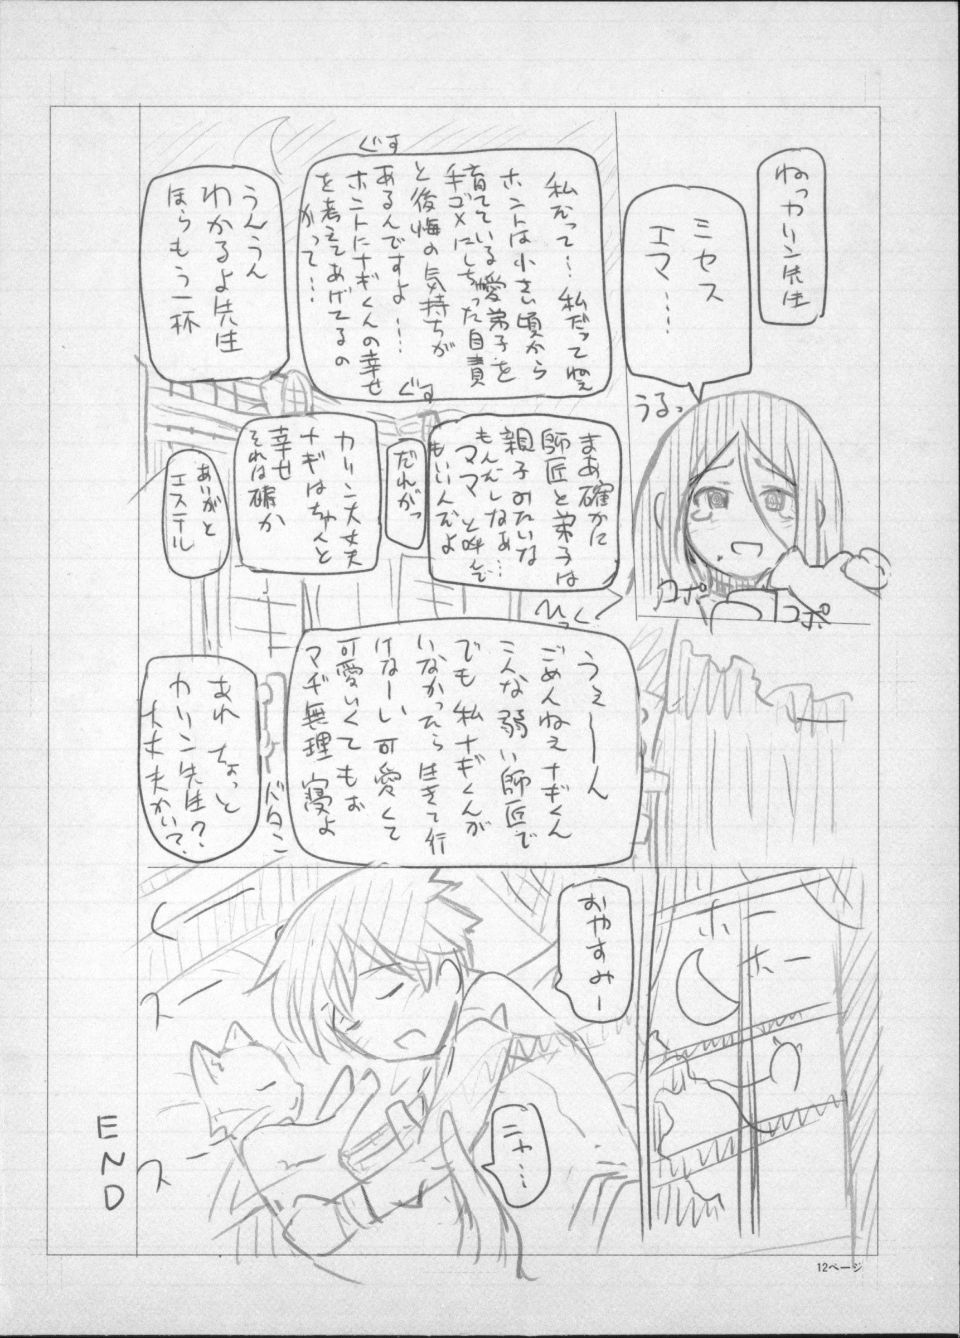 ねっカリン先生
ミセス
エマ…
うるっ
コポ
コポ
ぐす
私だって…私だってねぇ
ホントは小さい頃から
育てている愛弟子を
手ゴメにしちゃった自責
と後悔の気持ちが
あるんですよ…
ホントにナギくんの幸せ
を考えてあげてるの
かって…
ぐす
うんうん
わかるよ先生
ほらもう一杯
まあ確かに
師匠と弟子は
親子みたいな
もんだしなぁ…
ママと呼んで
もいいんだよ
だれがっ
カリン大丈夫
ナギはちゃんと
幸せ
それは確か
ありがと
エステル
ひっく
うぇーーん
ごめんねぇナギくん
こんな弱い師匠で
でも私ナギくんが
いなかったら生きて行
けなーい可愛くて
可愛いくてもぉ
マヂ無理寝よ
ドタン
あれちょっと
カリン先生?
大丈夫かい?
ホー
ホー
おやすみー
ニャ…
くー
スー
スー
END
12ページ